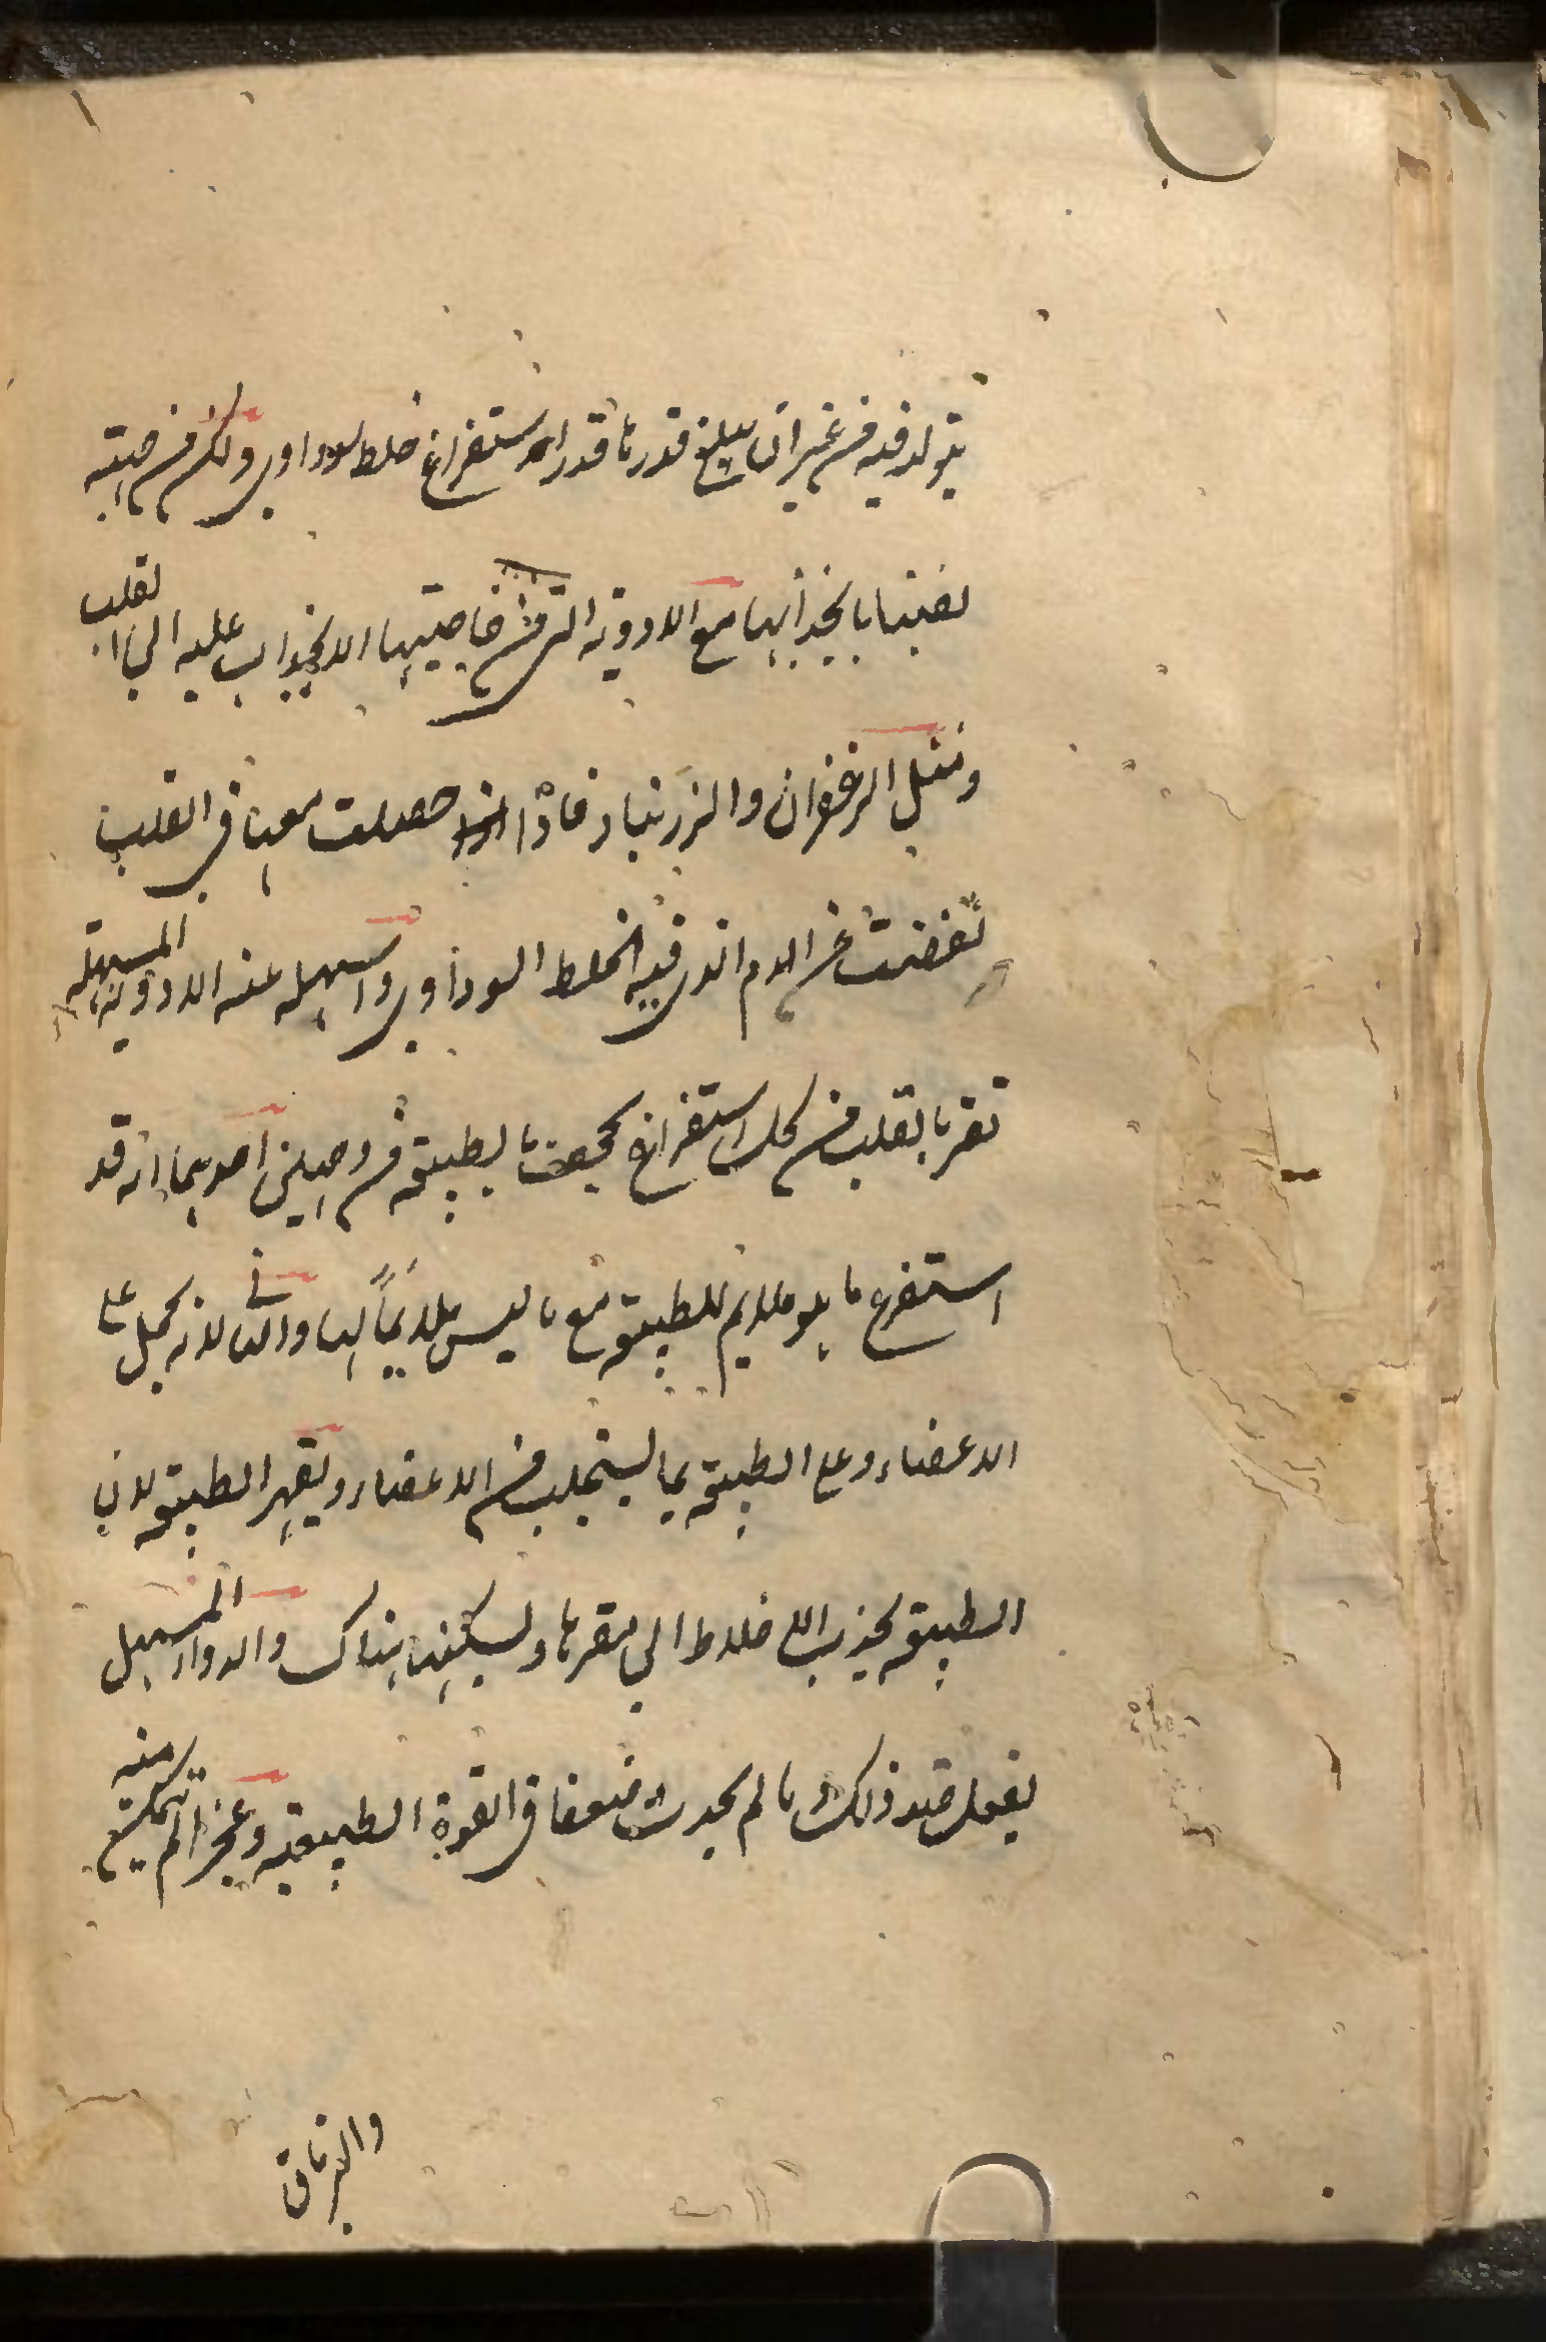 يتولد فيه من غير ان يبلغ قدرها قدر استفراغ خلط سوداوي ولكن من حيث
نفسها بانجذابها مع الادوية التي من خاصيتها الانجذاب عليه الي القلب
ومثل الزعفران والزرنباد فاذا حصلت معها في القلب
نفضت عن الدم الذي فيه الخلط السوداوي واسهله عنه الادوية المسهلة
تضر بالقلب من كل استفراغ مجحف بالطبيعة من وجهين احدهما انه قد
استفرغ ما هو ملايم للطبيعة مع ما ليس ملايماً لها والثاني لانه يحمل على
الاعضاء وعلى الطبيعة بما يستجلب من الاعضاء ويقهر الطبيعة لان
الطبيعة تجذب الاخلاط الي مقرها وتسكنها هناك والدواء المسهل
يفعل ضد ذلك وما لم يحدث ضعفا في القوة الطبيعية وعجزا لم تتمكن منه
والترياق